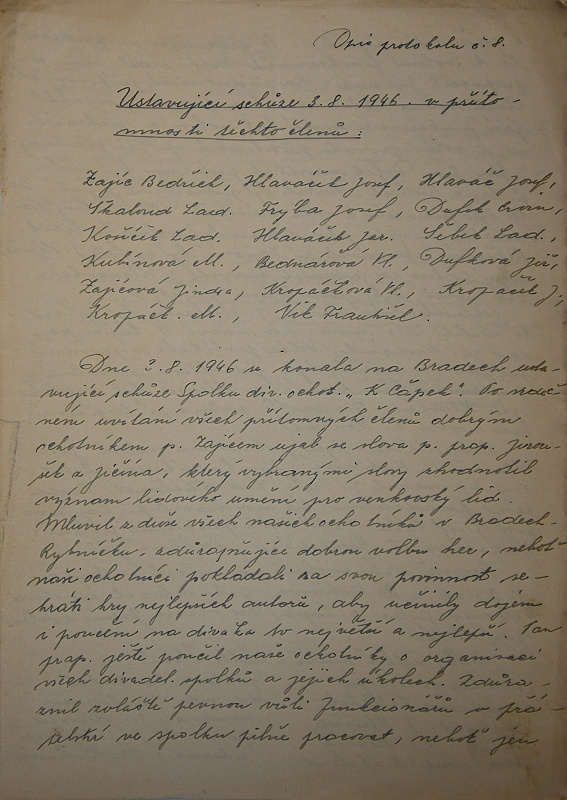 Opis protokolu č. 8.
Ustavující schůze 3. 8. 1946. v příto-
mnosti těchto členů:
Zajíc Bedřich, Hlaváček Josef, Hlaváč Josef,
Škaloud Lad. Fryba Josef, Dufek
Košťák Lad. Hlaváček Jar. Šibek Lad.,
Kubínová M., Bednářová Vl., Dufková Jiř,
Zajícová Jindra, Kropáčková Vl., Kropáček J.,
Kropáčk. M., Vik František.
Dne 3. 8. 1946 se konala na Bradech usta-
vující schůze Spolku div. ochot. „K Čápek". Po srdeč-
ném uvítání všech přítomných členů dobrým
ochotníkem p. Zajícem ujal se slova p. prof. Jirou-
šek z Jičína, který vybranými slovy zhodnotil
význam lidového umění pro venkovský lid.
Mluvil z duše všech našich ochotníků v Bradech-
Rybníčku, zdůrazňujíce dobrou volbu her, neboť
naši ochotníci pokládali za svou povinnost se-
hráti hry nejlepších autorů, aby učinily dojem
i poučení na diváka to největší a nejlepší. Pan
prof. ještě poučil naše ochotníky o organisaci
všech divadel. spolků a jejich úkolech. Zdůra-
znil zvláště pevnou vůli funkcionářů v přá-
telství ve spolku pilně pracovat, neboť jen